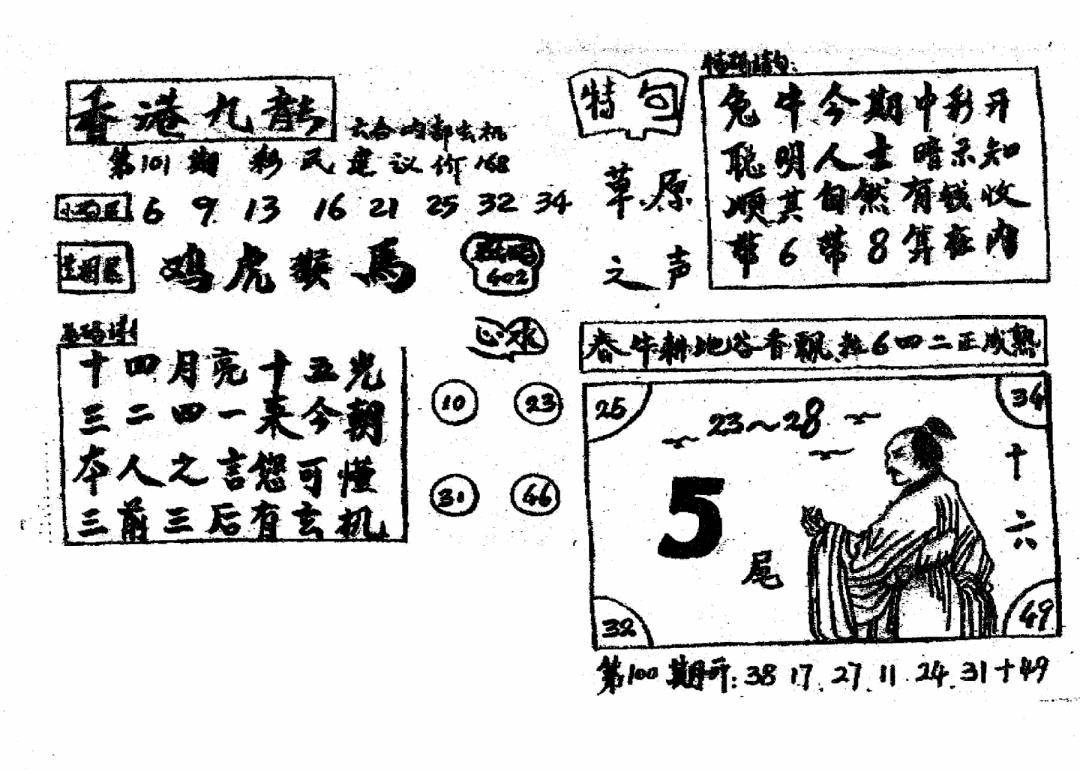 香港九龍
六合内部玄机
第101期 彩民建议价168
6 9 13 16 21 25 32 34
生肖区
鸡虎猴馬
602
十四月亮十五光
三二四一来今朝
本人之言您可懂
三前三后有玄机
心水
10 23
31 46
特句
草原
之声
兔牛今期中彩开
聪明人士暗示知
顺其自然有钱收
带6带8算在内
春牛耕地谷香飘
6四二正成熟
25
34
23~28
5
尾
十六
32
49
第100期开:38.17.27.11.24.31+49